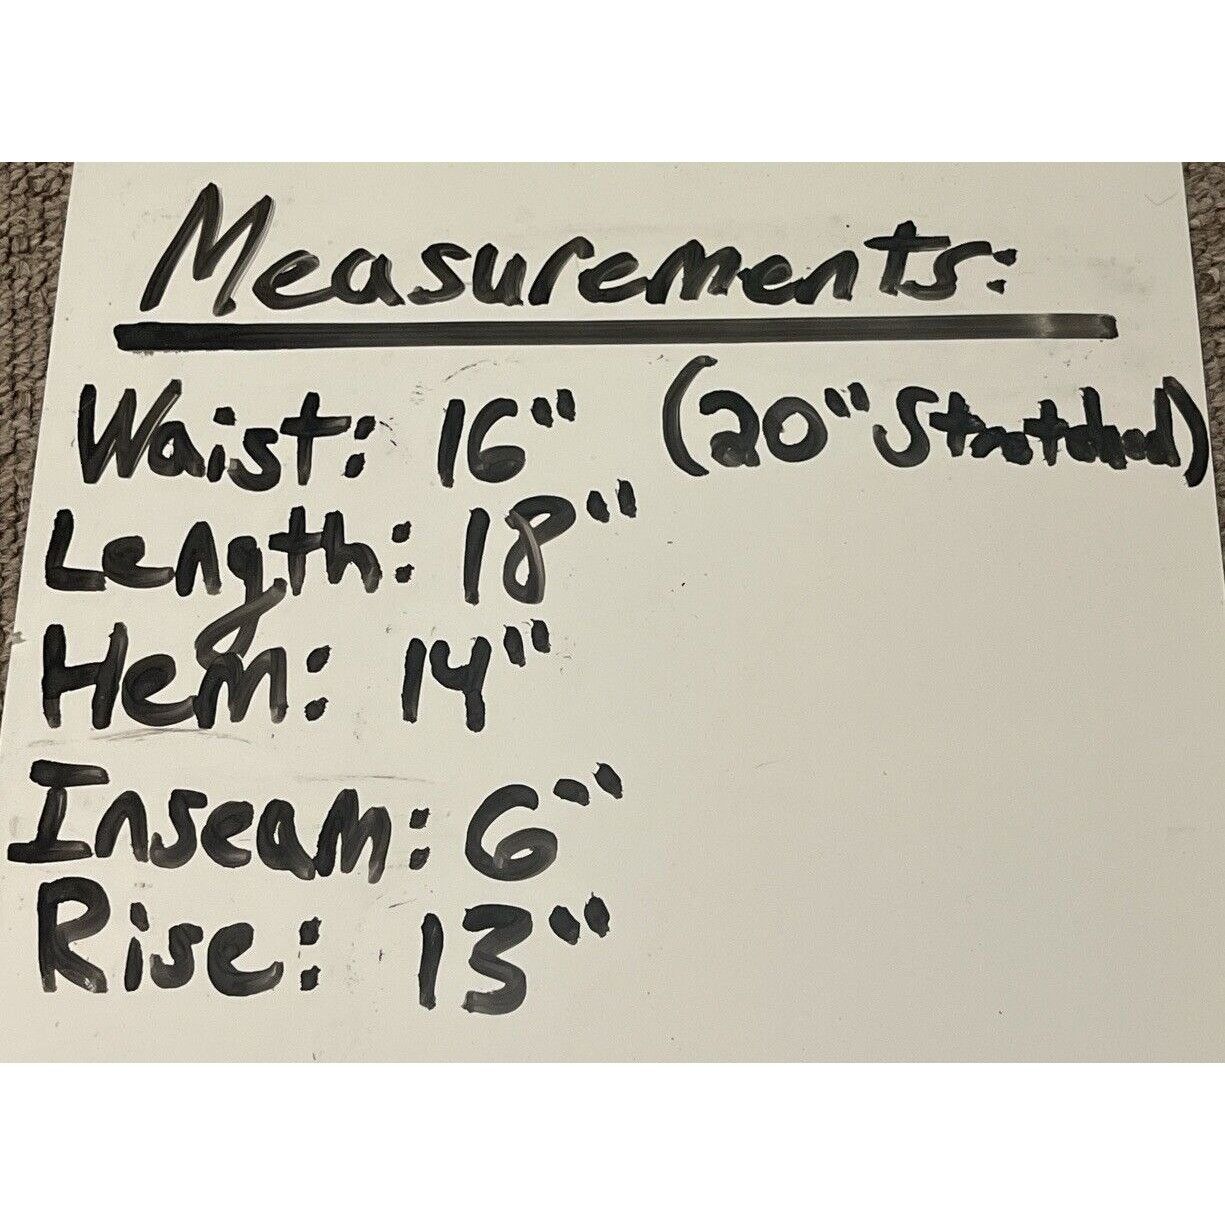 Measurements:
Waist: 16" (20" Stretched)
Length: 18"
Hem: 14"
Inseam: 6"
Rise: 13"